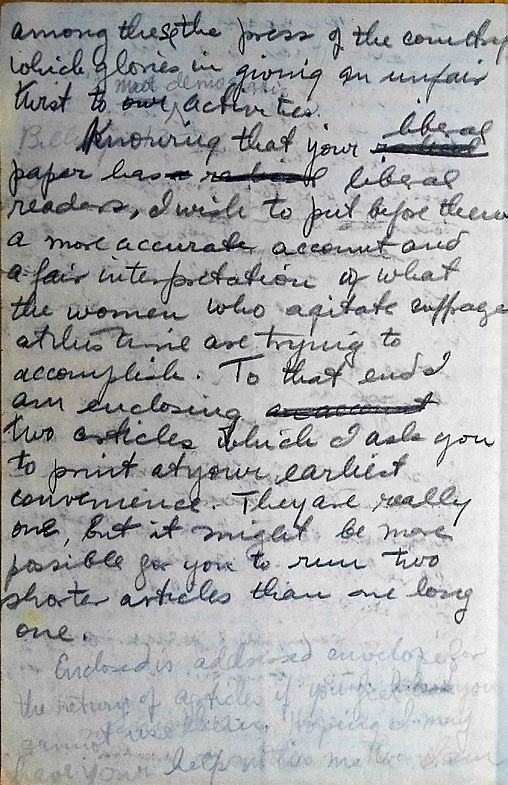 among these the press of the country
which glories in giving an unfair
most democratic
twist to our activities.
Knowing that your radical liberal
paper has a radical liberal
readers, I wish to put before them
a more accurate account and
a fair interpretation of what
the women who agitate suffrage
at this time are trying to
accomplish. To that end I
am enclosing an account
two articles which I ask you
to print at your earliest
convenience. They are really
one, but it might be more
possible for you to run two
shorter articles than one long
one.
Enclosed is addressed envelope for
the return of articles if you
cannot use them. Hoping I may
have your help in this matter I am